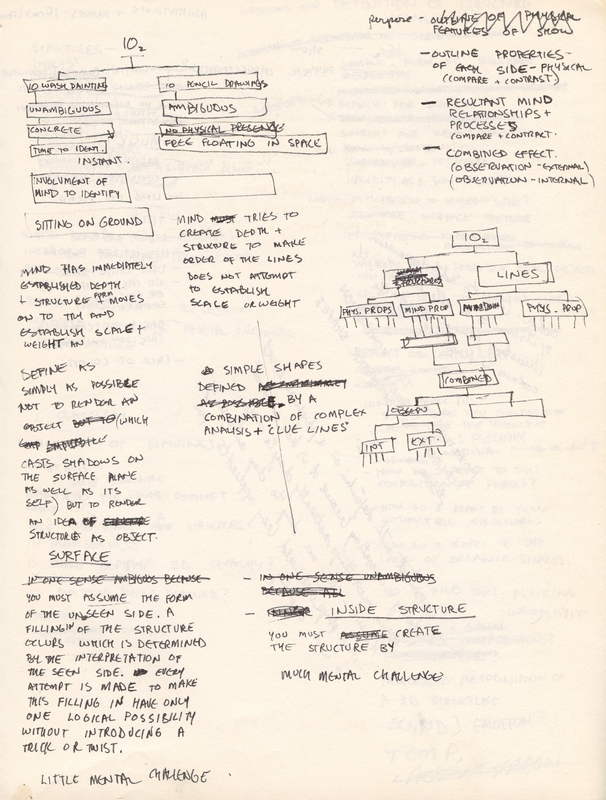 purpose - OUTLINE OF PHYSICAL
FEATURES OF SHOW
- OUTLINE PROPERTIES
OF EACH SIDE - PHYSICAL
(COMPARE + CONTRAST)
- RESULTANT MIND
RELATIONSHIPS +
PROCESSES
COMPARE + CONTRACT.
- COMBINED EFFECT.
(OBSERVATION - EXTERNAL)
(OBSERVATION - INTERNAL)
IO2
10 WASH PAINTING
UNAMBIGUOUS
CONCRETE
TIME TO IDENT.
INSTANT.
INVOLVMENT OF
MIND TO IDENTIFY
10 PENCIL DRAWINGS
AMBIGUOUS
NO PHYSICAL PRESENCE
FREE FLOATING IN SPACE
SITTING ON GROUND
MIND HAS IMMEDIATELY
ESTABLISHED DEPTH
+ STRUCTURE + MOVES
ON TO TRY AND
ESTABLISH SCALE +
WEIGHT AN
DEFINE AS
SIMPLY AS POSSIBLE
NOT TO RENDER AN
OBJECT BUT TO (WHICH
CASTS SHADOWS ON
THE SURFACE PLANE
AS WELL AS ITS
SELF) BUT TO RENDER
AN IDEA OF STRUCTURE
STRUCTURE AS OBJECT.
MIND MUST TRIES TO
CREATE DEPTH +
STRUCTURE TO MAKE
ORDER OF THE LINES
DOES NOT ATTEMPT
TO ESTABLISH
SCALE OR WEIGHT
SIMPLE SHAPES
DEFINED AS
AS POSSIBLE BY A
COMBINATION OF COMPLEX
ANALYSIS + "CLUE LINES"
IO2
STRUCTURES
LINES
PHYS. PROPS
MIND PROP
PHYS. PROP
COMBINED
OBSERV
INT
EXT.
SURFACE
IN ONE SENSE AMBIGUOUS BECAUSE
YOU MUST ASSUME THE FORM
OF THE UNSEEN SIDE. A
FILLING IN OF THE STRUCTURE
OCCURS WHICH IS DETERMINED
BY THE INTERPRETATION OF
THE SEEN SIDE. EVERY
ATTEMPT IS MADE TO MAKE
THIS FILLING IN HAVE ONLY
ONE LOGICAL POSSIBILITY
WITHOUT INTRODUCING A
TRICK OR TWIST.
LITTLE MENTAL CHALLENGE.
- IN ONE SENSE UNAMBIGUOUS
BECAUSE ALL
- INNER INSIDE STRUCTURE
YOU MUST ASSUME CREATE
THE STRUCTURE BY
MUCH MENTAL CHALLENGE